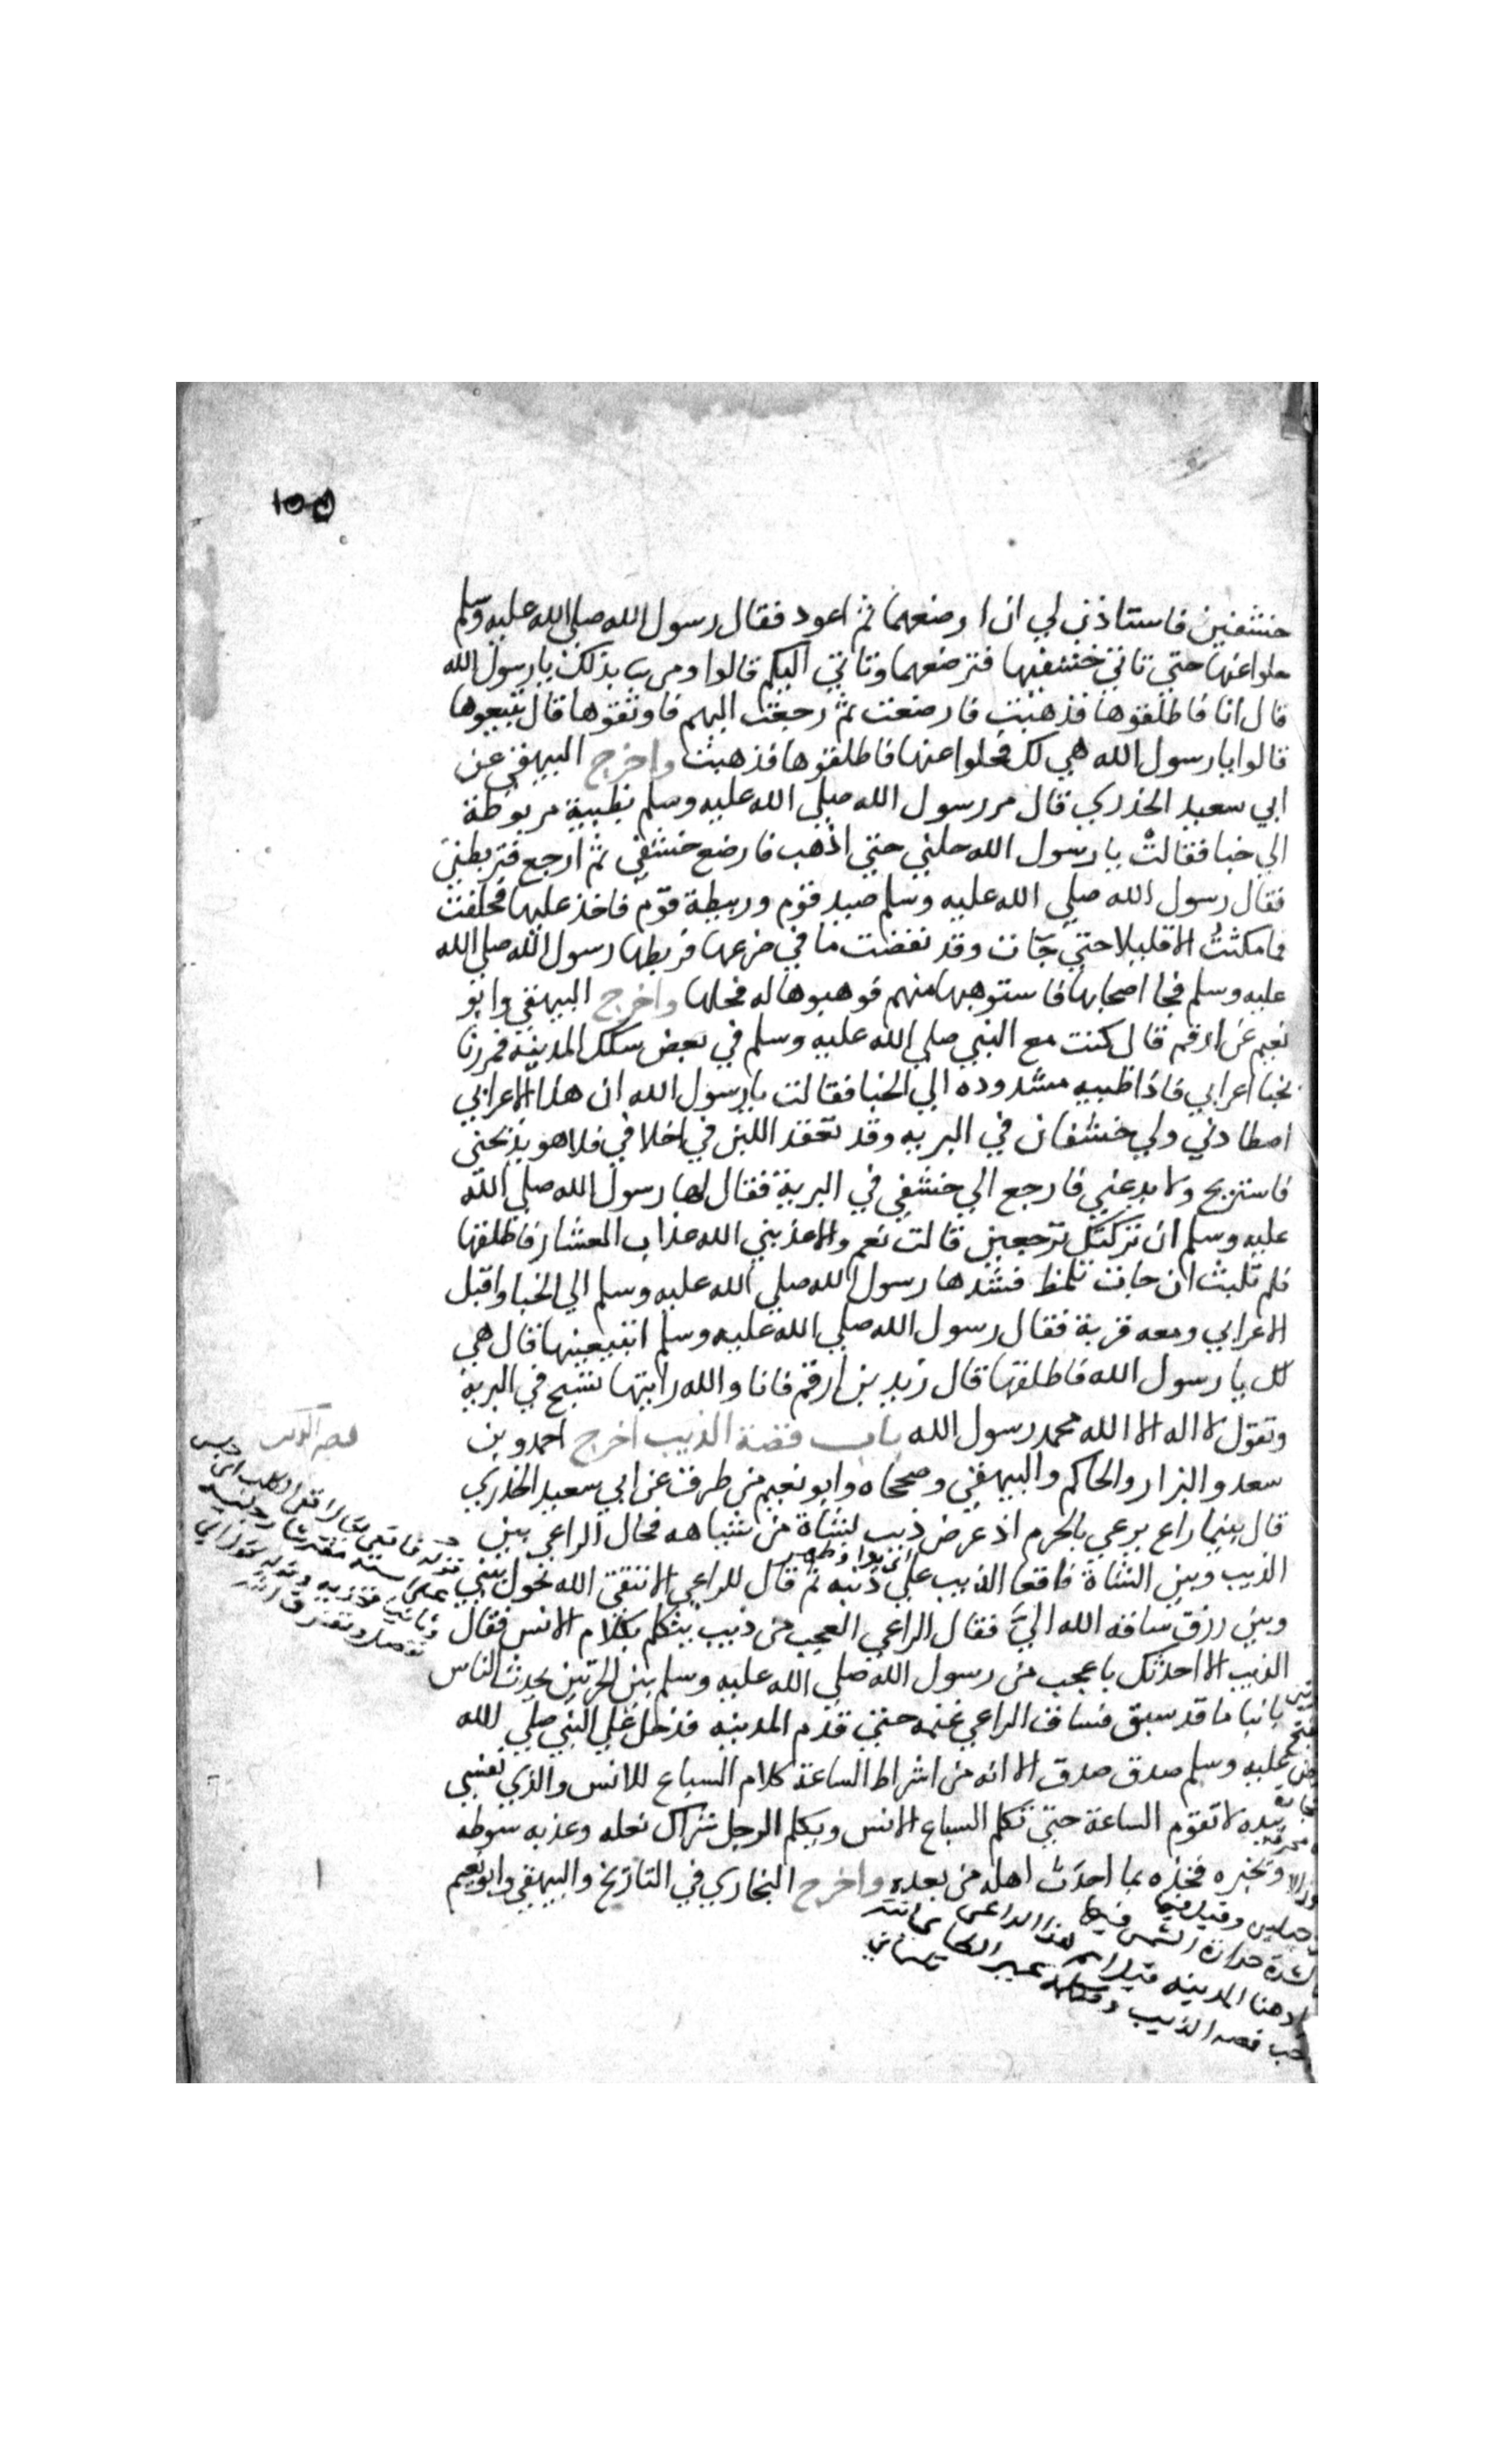 ١٥٥
خشفين فاستاذن لي ان ارضعهما ثم اعود فقال رسول الله صلي الله عليه وسلم
خلوا عنها حتي تاتي خشفيها فترضعهما وتاتي اليكم قالوا ومن بذلك يا رسول الله
قال انا فاطلقوها فذهبت فارضعت ثم رجعت اليهم فاوثقوها قال تبيعوها
قالوا يا رسول الله هي لك فخلوا عنها فاطلقوها فذهبت واخرج البيهقي عن
ابي سعيد الخذري قال مر رسول الله صلي الله عليه وسلم بظبية مربوطة
الي خبا فقالت يا رسول الله حلني حتي اذهب فارضع خشفي ثم ارجع فتربطني
فقال رسول الله صلي الله عليه وسلم صيد قوم وربيطة قوم فاخذ عليها فحلفت
فما مكثت الا قليلا حتي جآت وقد نفضت ما في ضرعها فربطها رسول الله صلي الله
عليه وسلم فجا اصحابها فاستوهبها منهم فوهبوها له فحلها واخرج البيهقي وابو
نعيم عن ارقم قال كنت مع النبي صلي الله عليه وسلم في بعض سكك المدينة فمررنا
بخبا اعرابي فاذا ظبيه مشدوده الي الخبا فقالت يا رسول الله ان هذا الاعرابي
اصطادني ولي خشفان في البريه وقد تعقد اللبن في اخلافي فلا هو يذبحني
فاستريح ولا يدعني فارجع الي خشفي في البرية فقال لها رسول الله صلي الله
عليه وسلم ان تركتك ترجعين قالت نعم والا عذبني الله عذاب العشار فاطلقها
فلم تلبث ان جات تلمظ فشدها رسول الله صلي الله عليه وسلم الي الخبا واقبل
الاعرابي ومعه قربة فقال رسول الله صلي الله عليه وسلم اتبيعينها قال هي
لك يا رسول الله فاطلقها قال زيد بن ارقم فانا والله رايتها تسبح في البرية
وتقول لا اله الا الله محمد رسول الله باب قصة الذيب اخرج احمد وبن
سعد والبزار والحاكم والبيهقي وصححاه وابو نعيم من طرق عن ابي سعيد الخذري
قال بينما راع يرعي بالحرم اذ عرض ذيب لشاة من شياهه فحال الراعي بين
الذيب وبين الشاة فاقعا الذيب علي ذنبه ثم قال للراعي الا تتقي الله تحول بيني
وبين رزق ساقه الله اليّ فقال الراعي العجب من ذيب يتكلم بكلام الانس فقال
الذيب الا احدثك باعجب من رسول الله صلي الله عليه وسلم بين الحرتين يحدث الناس
بانبا ما قد سبق فساق الراعي غنمه حتي قدم المدينه فدخل علي النبي صلي الله
عليه وسلم صدق صدق الا انه من اشراط الساعة كلام السباع للانس والذي نفسي
بيده لا تقوم الساعة حتي تكلم السباع الانس ويكلم الرجل شراك نعله وعذبه سوطه
وتخبره فخذه بما احدث اهله من بعده واخرج البخاري في التاريخ والبيهقي وابو نعيم
قصه الذيب
قوله فاقعي